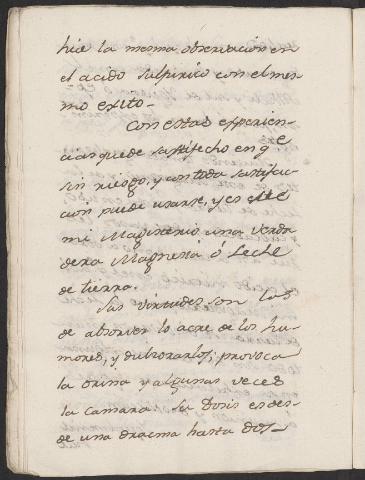 hice la mesma observacion en
el acido sulpurico con el mes-
mo exito-
Con estas experien-
cias quede satisfecho en qe
sin riesgo, y con toda satisfac-
cion puede usarse, y es este
mi Magisterio una verda-
dera Magnesia ó Leche
de tierra.
Sus virtudes son las
de absorver lo acre de los hu-
mores, y dulzorarlos; provoca
la orina y algunas veces
la camara. Su Dosis es des-
de una dracma hasta dos-